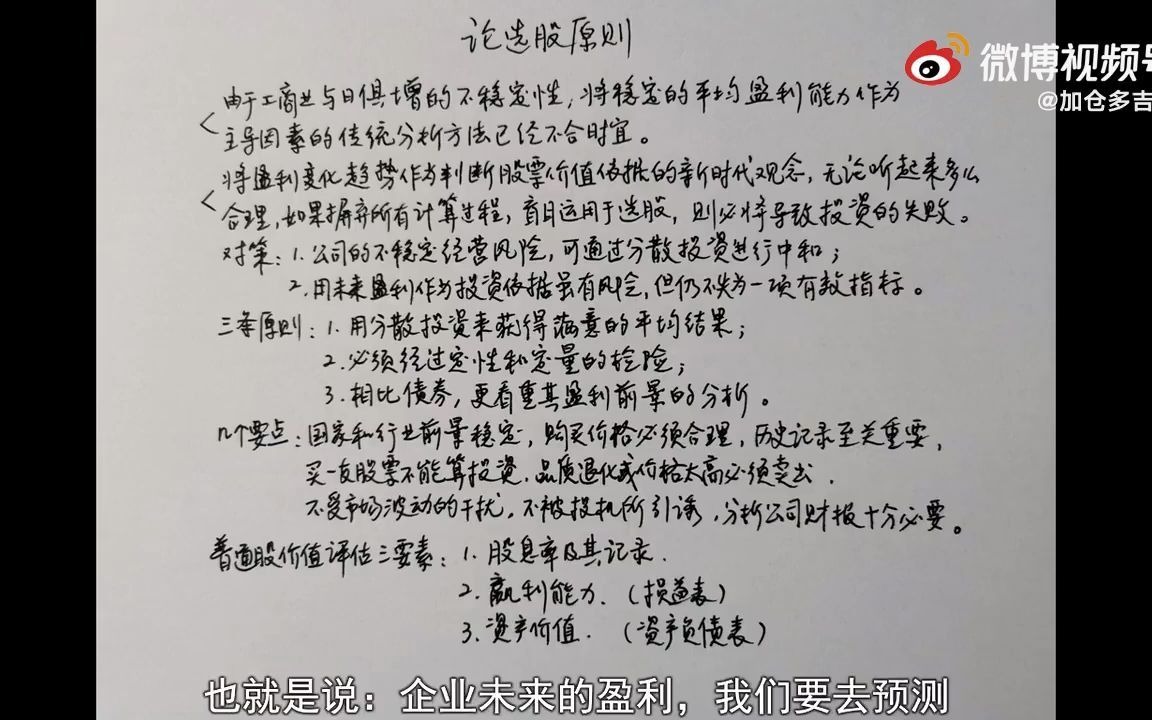 论选股原则
微博视频号
@加仓多吉
由于工商业与日俱增的不稳定性，将稳定的平均盈利能力作为
主导因素的传统分析方法已经不合时宜。
将盈利变化趋势作为判断股票价值依据的新时代观念，无论听起来多么
合理，如果摒弃所有计算过程，盲目运用于选股，则必将导致投资的失败。
对策：1. 公司的不稳定经营风险，可通过分散投资进行中和；
2. 用未来盈利作为投资依据虽有风险，但仍不失为一项有效指标。
三条原则：1. 用分散投资来获得满意的平均结果；
2. 必须经过定性和定量的检验；
3. 相比债券，更看重其盈利前景的分析。
几个要点：国家和行业前景稳定，购买价格必须合理，历史记录至关重要，
买一支股票不能算投资，品质退化或价格太高必须卖出．
不受市场波动的干扰，不被投机所引诱，分析公司财报十分必要。
普通股价值评估三要素：1. 股息率及其记录．
2. 赢利能力．（损益表）
3. 资产价值．（资产负债表）
也就是说：企业未来的盈利，我们要去预测